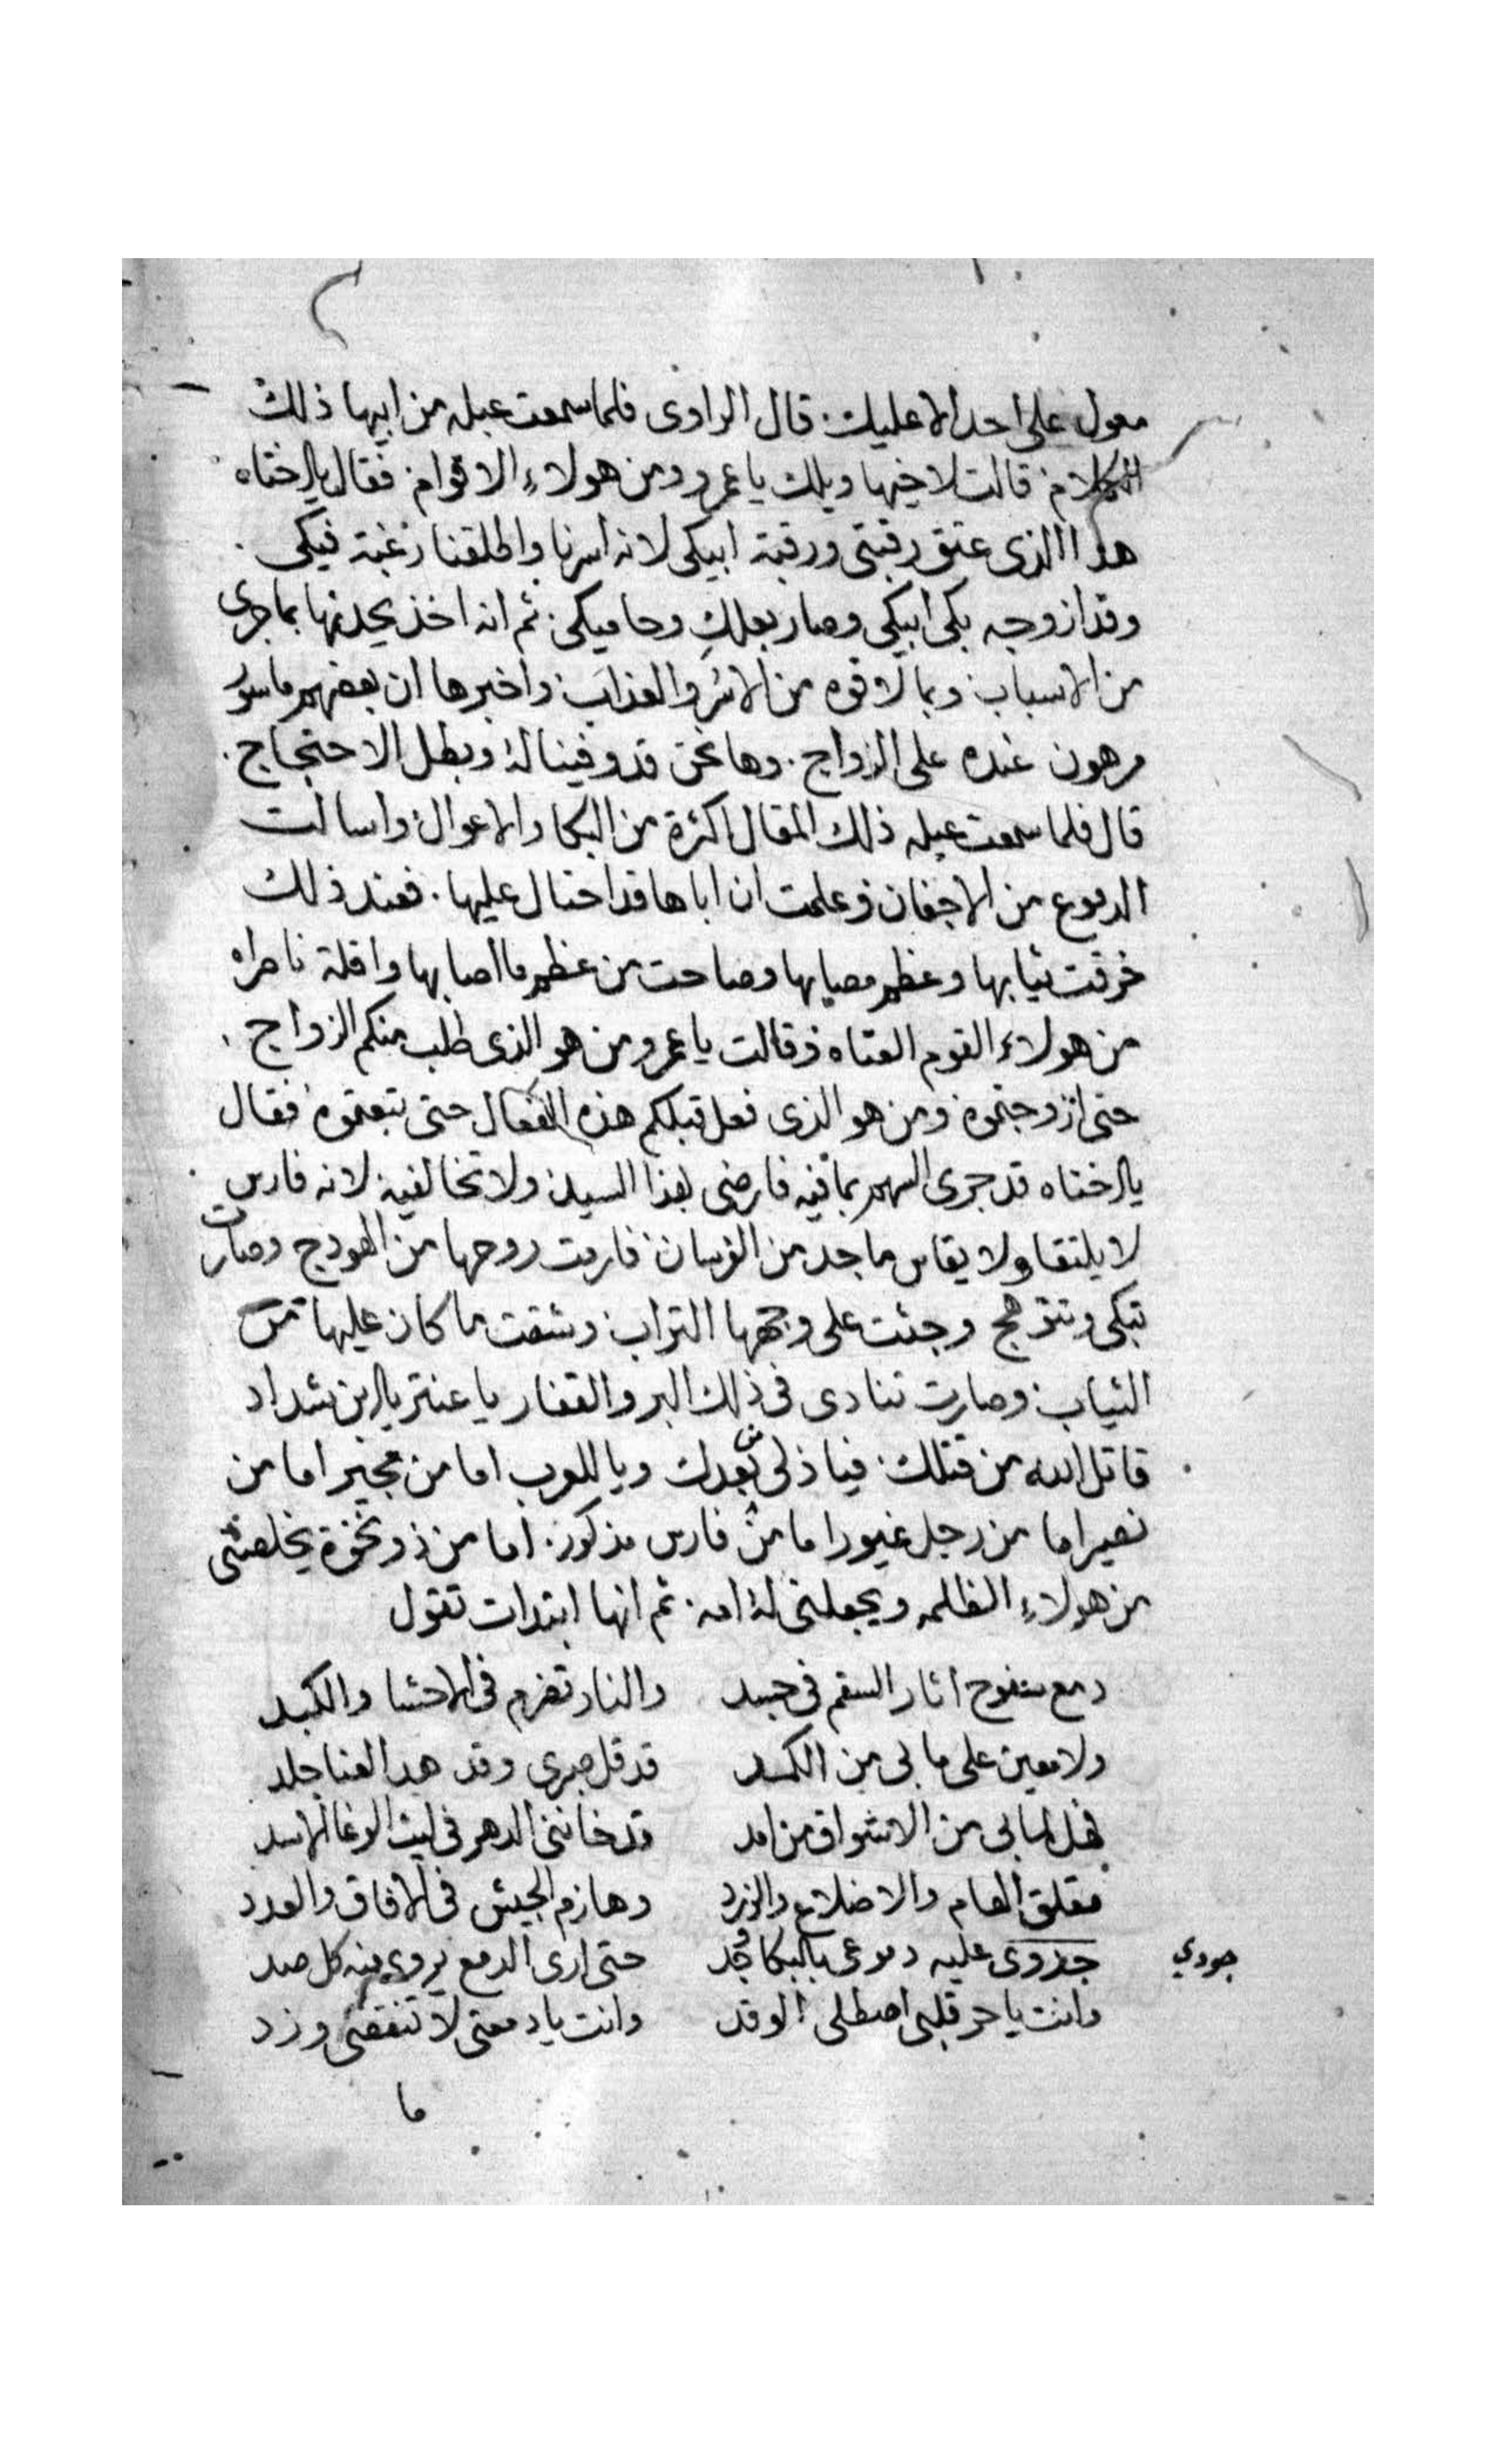 معول على احد الا عليك قال الراوى فلما سمعت عبله من ابيها ذلك
الكلام قالت لاخيها ويلك يا عمرو ومن هولاء الاقوام فقال يا اختاه
هذا الذى عتق رقبتى ورقبة ابيكى لانه اسرنا واطلقنا رغبة فيكى
وقد ازوجه بكى ابيكى وصار بعلك وحاميكى ثم انه اخذ يحدثها بما جرى
من الاسباب وبما لاقوه من الاسر والعذاب واخبرها ان بعضهم ماسور
مرهون عنده على الزواج وها نحن قد وفينا له وبطل الاحتجاج
قال فلما سمعت عبله ذلك المقال اكثرة من البكا والاعوال واسالت
الدموع من الاجفان وعلمت ان اباها قد احتال عليها فعند ذلك
خرقت ثيابها وعظم مصابها وصاحت من عظم ما اصابها واقلة ناصراه
من هولاء القوم العتاه وقالت يا عمرو من هو الذى طلب منكم الزواج
حتى ازوجتموه ومن هو الذى فعل قبلكم هذه الفعال حتى تبعتموه فقال
يا اختاه قد جرى السهم بما فيه فارضى بهذا السيد ولا تخالفيه لانه فارس
لا يلتقا ولا يقاس باحد من الفرسان فارمت روحها من الهودج وصارت
تبكى وتنزعج وجثت على وجهها التراب وشقت ما كان عليها من
الثياب وصارت تنادى فى ذلك البر والقفار يا عنتر يا ابن شداد
قاتل الله من قتلك فيا ذلى من بعدك ويا للعرب اما من مجير اما من
نصير اما من رجل غيور اما من فارس مذكور اما من ذو نخوة يخلصنى
من هولاء الظلمه ويجعلنى له امه ثم انها ابتدات تقول
دمع سفوح اثار السقم فى جسد والنار تضرم فى الاحشا والكبد
ولا معين على ما بى من الكمد قد قل صبرى وقد هد العنا جلد
فهل لما بى من الاشواق من امد قد خاننى الدهر فى ليث الوغا الاسد
مقلق الهام والاضلاع والزرد وهازم الجيش فى الافاق والعدد
جودي
عليه دموعى بالبكا وجد حتى ارى الدمع يروى منه كل صد
وانت يا حر قلبى اصطلى الوقد وانت يا دمعتى لا تنقضى وزد
ما